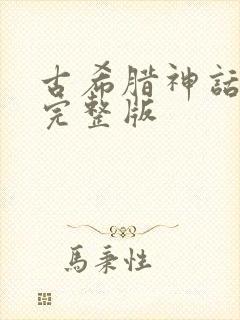 古希腊神話
完整版
馬秉性